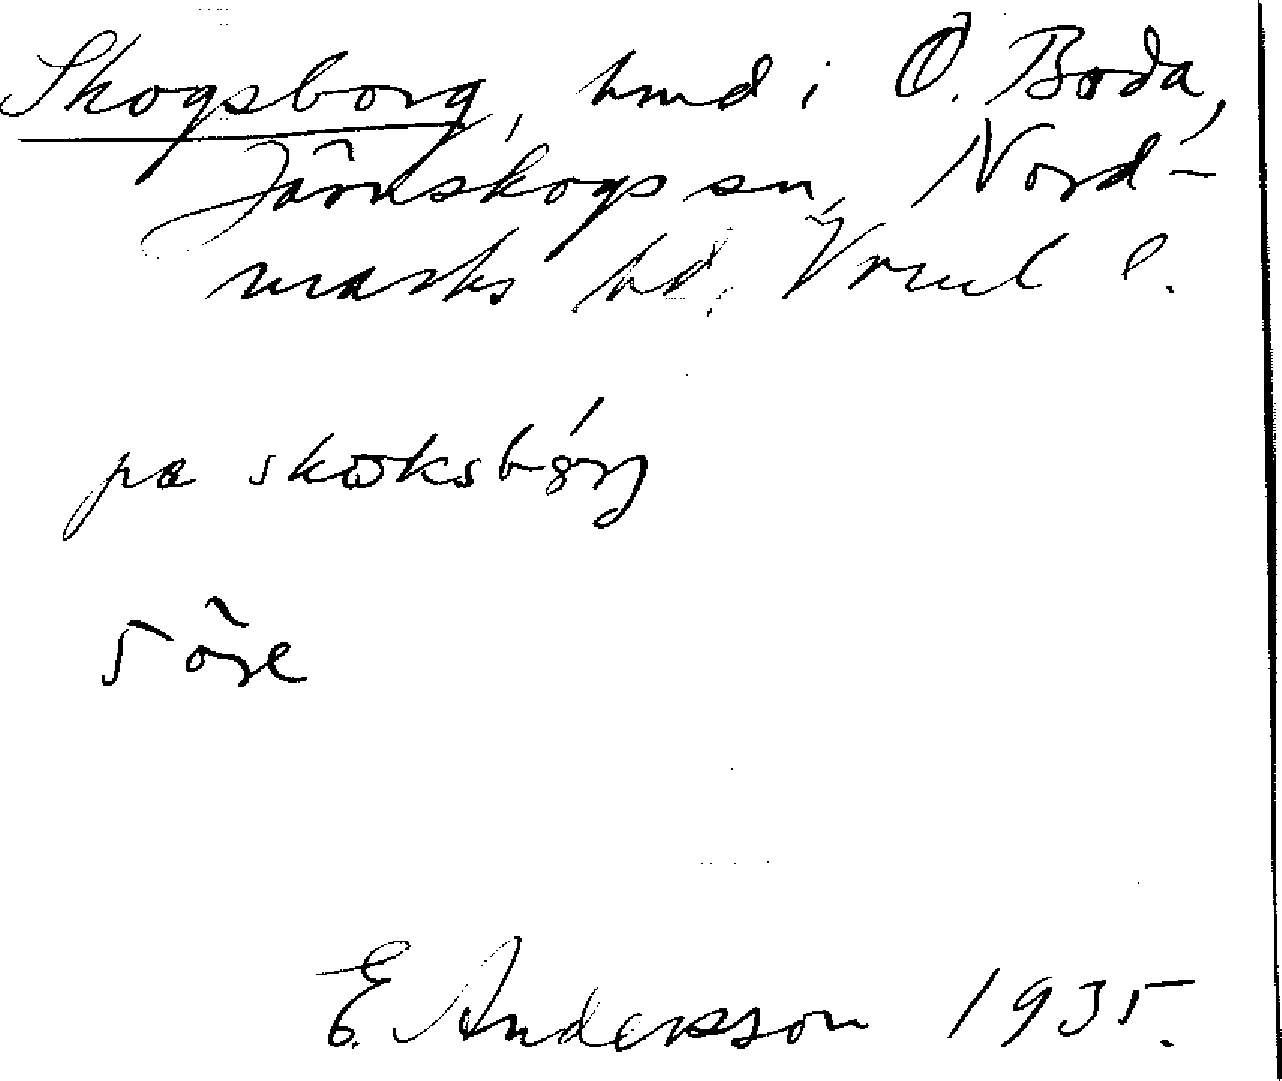 Skogsborg, hmd i Ö. Boda,
Järnskogs sn, Nord-
marks hd, Vrml l.
pa skɷksbórj
5 öre
E. Andersson 1935.